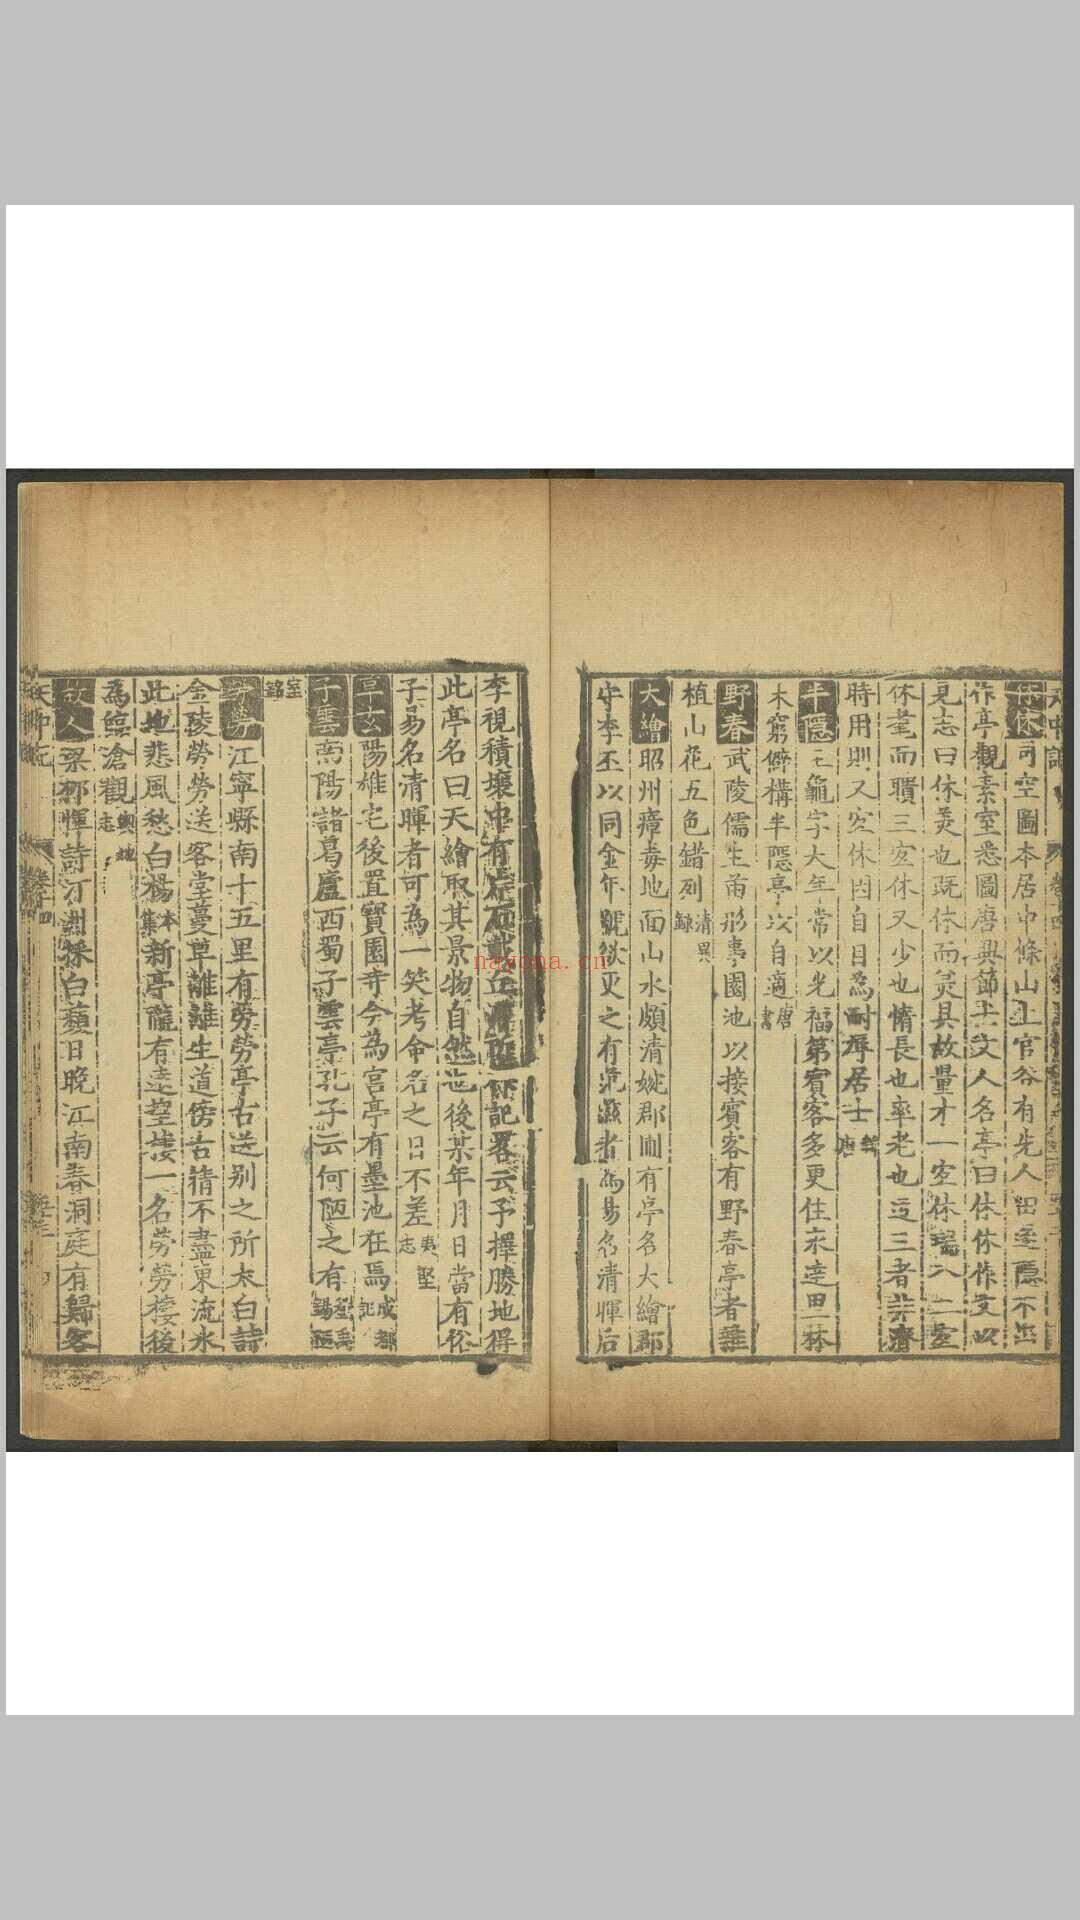 休休司空圖本居中條山王官谷有先人田遂隱不出
作亭觀素室悉圖唐興節士文人名亭曰休休作文以
見志曰休美也既休而美具故量才一宜休揣分二宜
休耄而聵三宜休又少也惰長也率老也迂三者非濟
時用則又宜休因自目為耐辱居士
半隱王龜字大年常以光福第賓客多更住永達里林
木窮僻構半隱亭以自適唐書
野春武陵儒生苗彤事園池以接賓客有野春亭者雜
植山花五色錯列清異錄
大繪昭州瘴毒地面山水頗清婉郡圃有亭名大繪郡
守李丕以同金年號欲更之有范滋者為易名清暉后
李視積壤中有片石戴丘濬
記畧云予擇勝地得
此亭名曰天繪取其景物自然也後某年月日當有俗
子易名清暉者可為一笑考命名之日不差夷堅志
草玄陽雄宅後置寶園寺今為宮亭有墨池在焉成都記
子雲南陽諸葛廬西蜀子雲亭孔子云何陋之有劉禹錫陋
室銘
勞勞江寧縣南十五里有勞勞亭古送別之所太白詩
金陵勞勞送客堂蔓草離離生道傍古情不盡東流水
此地悲風愁白楊本集新亭隴有遠望樓一名勞勞樓後
為臨滄觀輿地志
故人梁柳惲詩汀洲採白蘋日晚江南春洞庭有歸客
nayona.cn